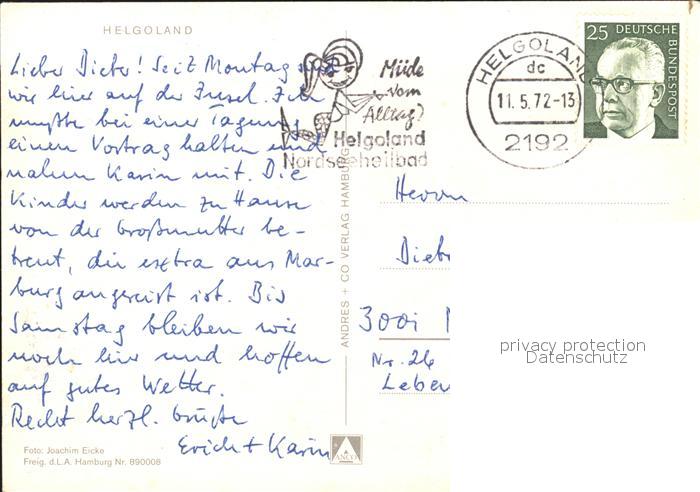 HELGOLAND
Lieber Dieter! Seit Montag sind
wir hier auf der Insel. Ich
mußte bei einer Tagung
einen Vortrag halten und
nahm Karin mit. Die
Kinder werden zu Hause
von der Großmutter be-
treut, die extra aus Mar-
burg angereist ist. Bis
Samstag bleiben wir
noch hier und hoffen
auf gutes Wetter.
Recht herzl. Grüße
Erich + Karin
Foto: Joachim Eicke
Freig. d.L.A. Hamburg Nr. 890008
ANDRES + CO VERLAG HAMBURG
ANCO
Müde
vom
Alltag?
Helgoland
Nordseeheilbad
HELGOLAND
dc
11.5.72-13
2192
25 DEUTSCHE
BUNDESPOST
Herrn
Diet
3001
Nr. 26
Leben
privacy protection
Datenschutz